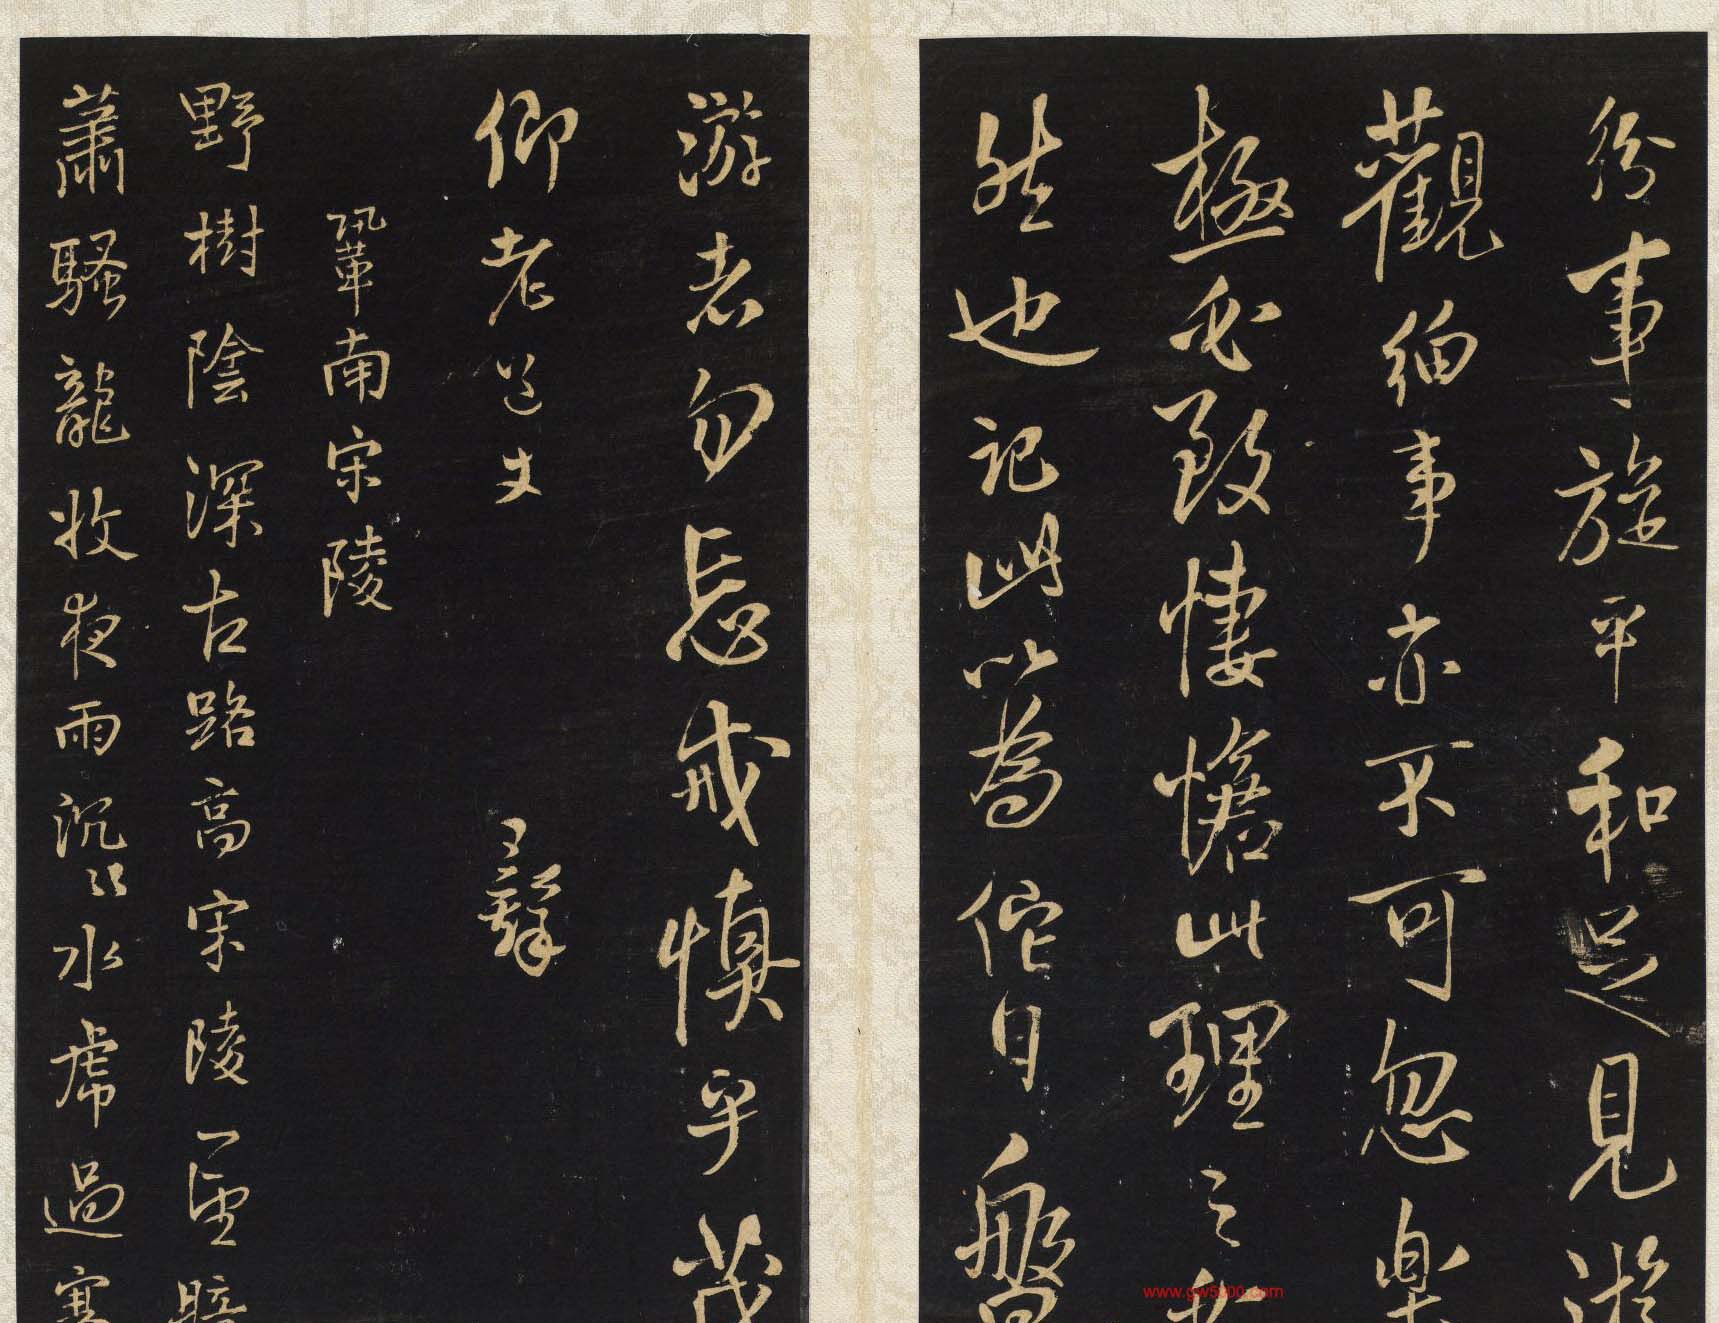 紛事旋平和足見游
觀細事亦不可忽樂
極必致悽愴此理之
然也記此以為佗日
游者勿忘戒慎乎茂
仰老道丈
鞏南宋陵
野樹陰深古路高宋陵一望
蕭騷龍收夜雨沉沉水虎過寒
www.gw5000.com